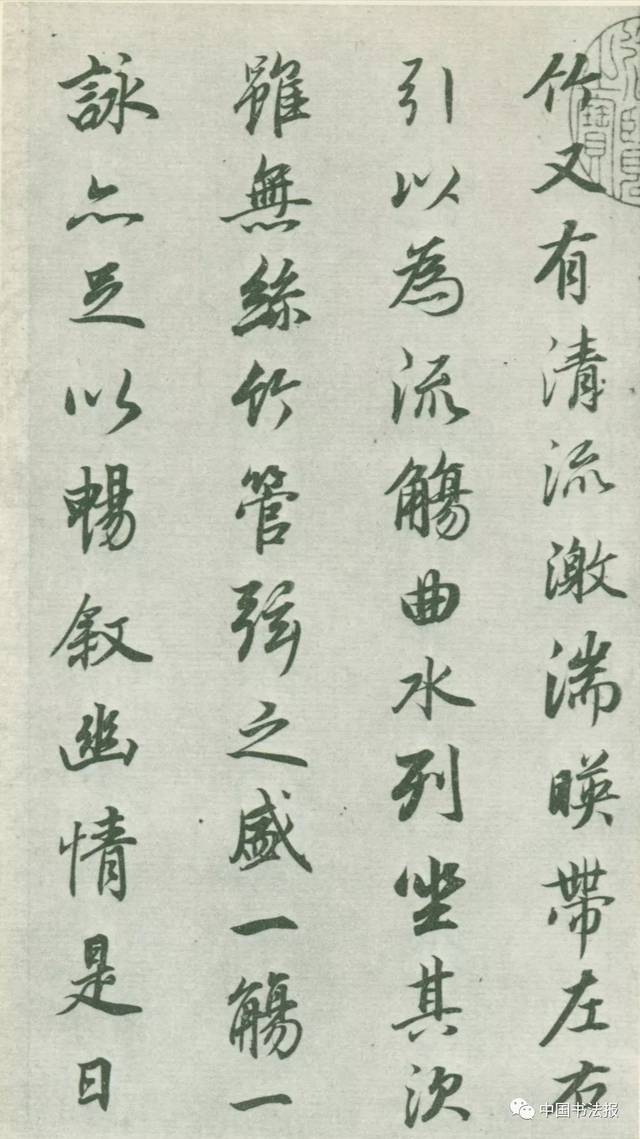 竹又有清流激湍暎帶左右
引以為流觴曲水列坐其次
雖無絲竹管弦之盛一觴一
詠亦足以暢叙幽情是日
中国书法报